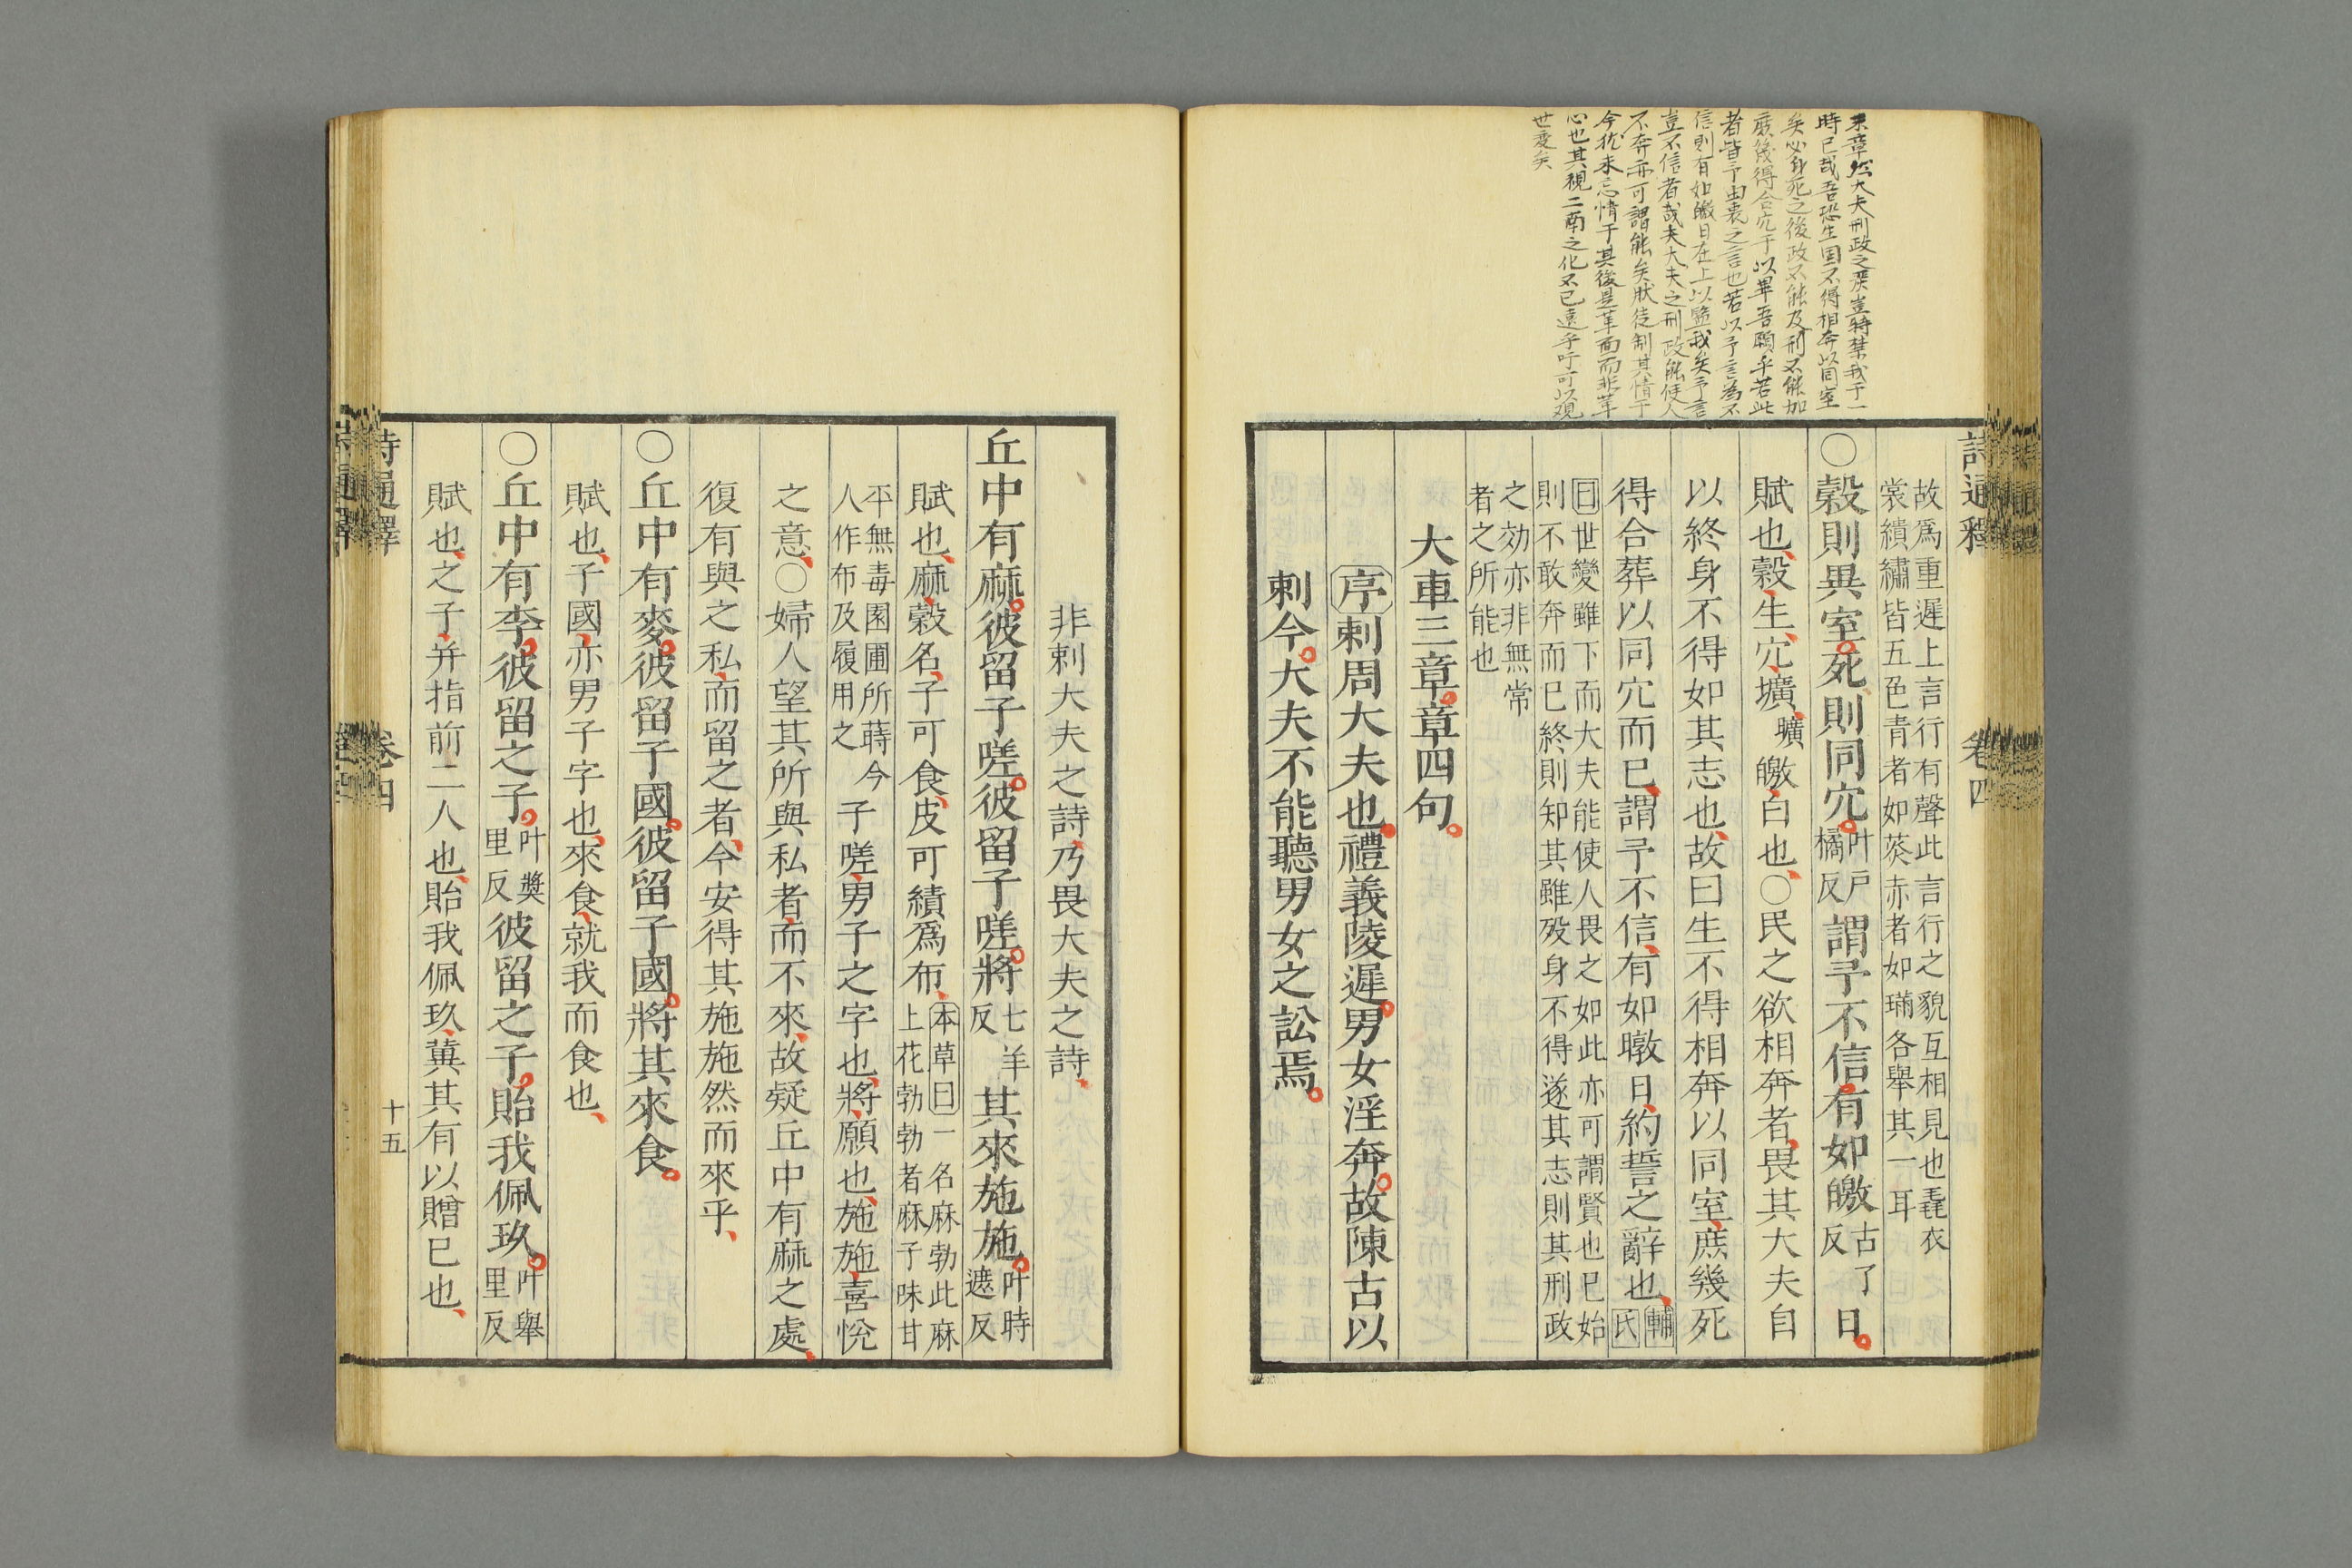 末章然大夫刑政之嚴豈特禁我于一
時已哉吾恐生固不得相奔以同室
矣必身死之後政不能及刑不能加
庶幾得合穴于以畢吾願乎若此
者皆予由衷之言也若以予言為不
信則有如皦日在上以鑒我矣予言
豈不信者哉夫大夫之刑政能使人
不奔亦可謂能矣然徒制其情于
今猶未忘情于其後是革面而非革
心也其視二南之化不已遠乎吁可以观
世变矣
詩通釋 卷四
故爲重遲上言行有聲此言行之貌互相見也毳衣
裳繢繡皆五色青者如菼赤者如璊各舉其一耳
○糓則異室死則同穴叶戶橘反謂予不信有如皦古了反日
賦也糓生穴壙壙皦白也○民之欲相奔者畏其大夫自
以終身不得如其志也故曰生不得相奔以同室庶幾死
得合葬以同穴而已謂予不信有如曒日約誓之辭也輔氏
曰世變雖下而大夫能使人畏之如此亦可謂賢也已始
則不敢奔而已終則知其雖殁身不得遂其志則其刑政
之効亦非無常
者之所能也
大車三章章四句
序刺周大夫也禮義陵遲男女淫奔故陳古以
刺今大夫不能聽男女之訟焉
非刺大夫之詩乃畏大夫之詩
丘中有麻彼留子嗟彼留子嗟將七羊反其來施施叶時遮反
賦也麻穀名子可食皮可績爲布本草曰一名麻勃此麻
上花勃勃者麻子味甘
平無毒園圃所蒔今
人作布及履用之子嗟男子之字也將願也施施喜悅
之意○婦人望其所與私者而不來故疑丘中有麻之處
復有與之私而留之者今安得其施施然而來乎
○丘中有麥彼留子國彼留子國將其來食
賦也子國亦男子字也來食就我而食也
○丘中有李彼留之子叶奬里反彼留之子貽我佩玖叶舉里反
賦也之子并指前二人也貽我佩玖兾其有以贈已也
詩通釋 卷四 十五